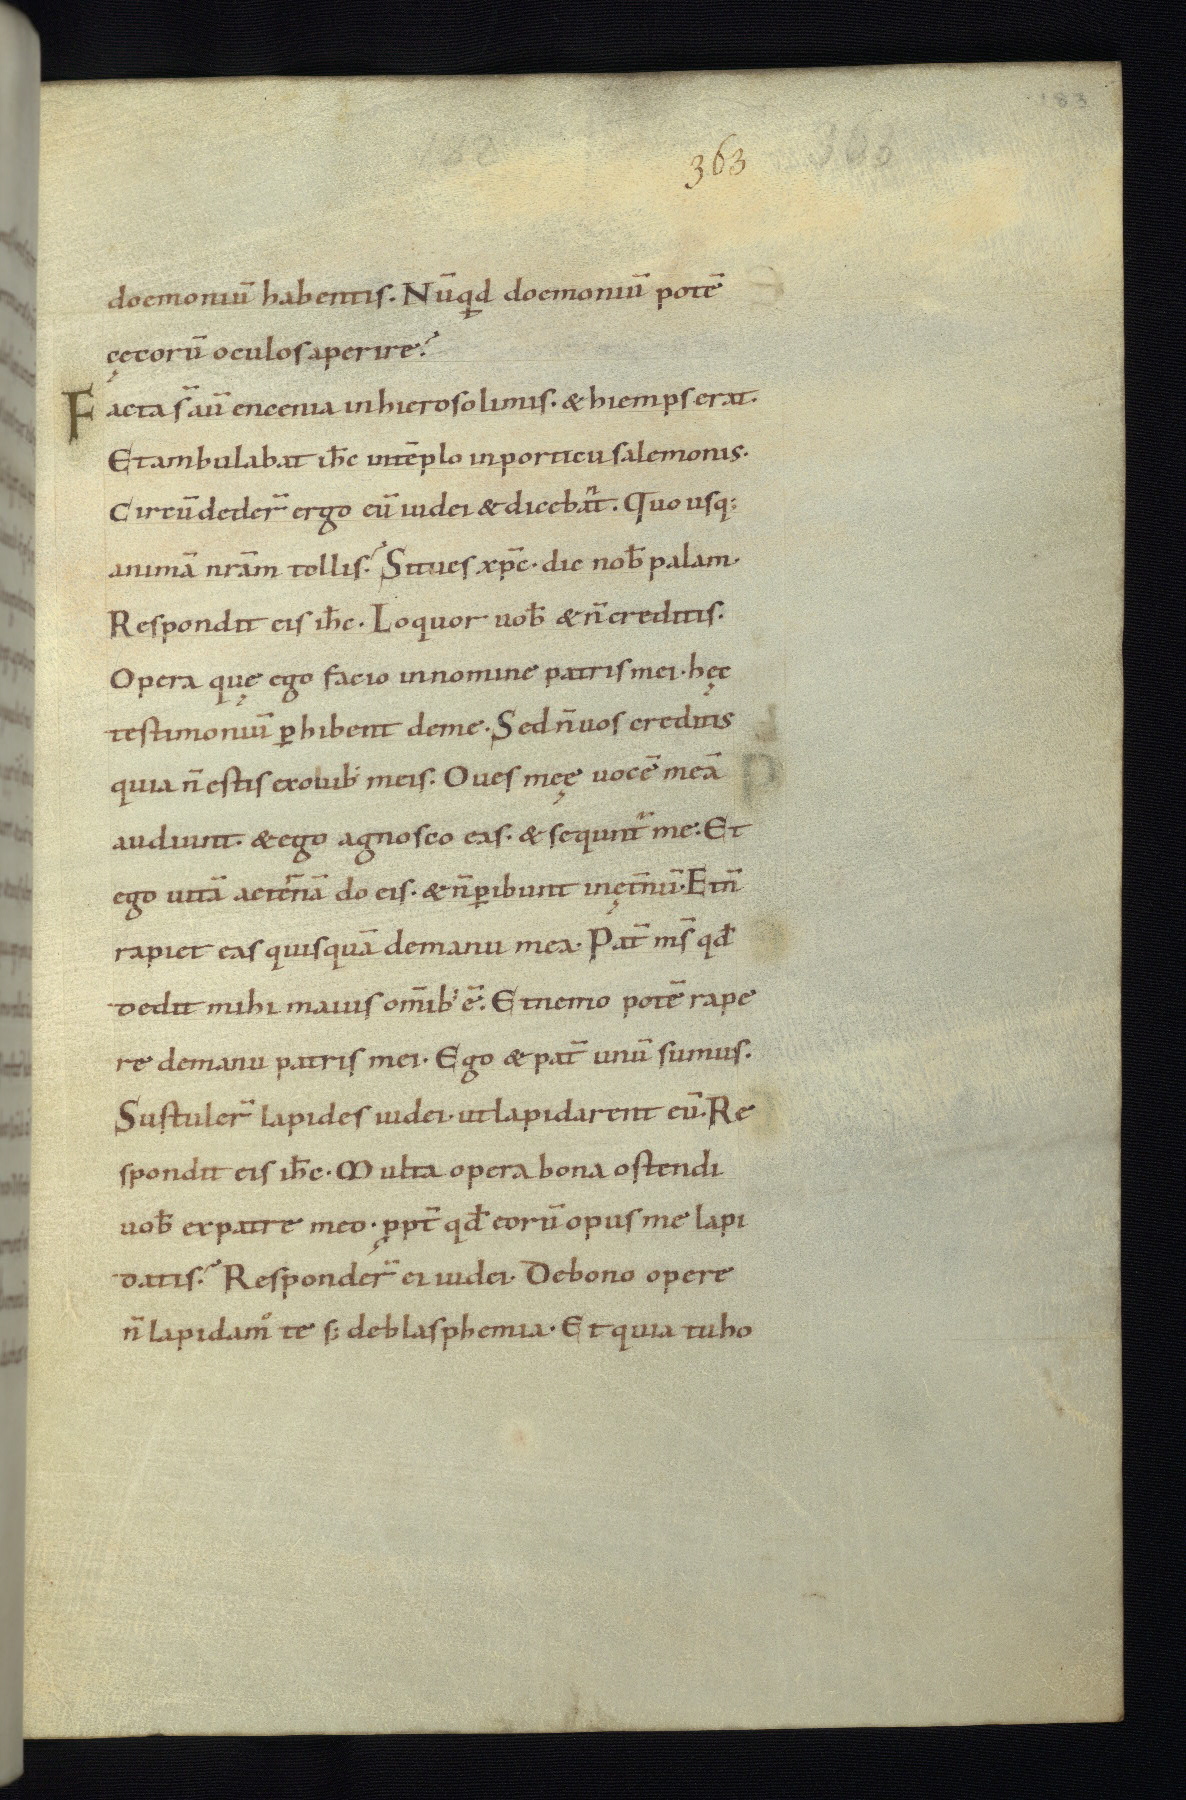 183
363
doemoniū habentis. Nūqd doemoniū potē
cęcorū oculos aperire?
Facta s̄ aū encenia in hierosolimis. & hiemps erat.
Et ambulabat ih̄c in tēplo in porticu salemonis.
Circūdeder̄ ergo eū iudei & dicebāt. Quousq:
animā nr̄am tollis? Si tu es xp̄c. dic nob̄ palam.
Respondit eis ih̄c. Loquor uob̄ & n̄ creditis.
Opera quę ego facio in nomine patris mei. hęc
testimoniū ꝑhibent de me. Sed n̄ uos creditis
quia n̄ estis ex ouib; meis. Oues meę uocē meā
audiunt. & ego agnosco eas. & sequnt̄ me. Et
ego uitā aeternā do eis. & n̄ ꝑibunt in ęt̄nū. Et n̄
rapiet eas quisquā de manu mea. Pat̄ ms̄ qđ
dedit mihi maius om̄ib; ē. Et nemo potē rape
re de manu patris mei. Ego & pat̄ unū sumus.
Sustuler̄ lapides iudei. ut lapidarent eū. Re
spondit eis ih̄c. Multa opera bona ostendi
uob̄ ex patre meo. ꝓpt̄ qđ eorū opus me lapi
datis? Responder̄ ei iudei. De bono opere
n̄ lapidam᷒ te s; de blasphemia. Et quia tu ho